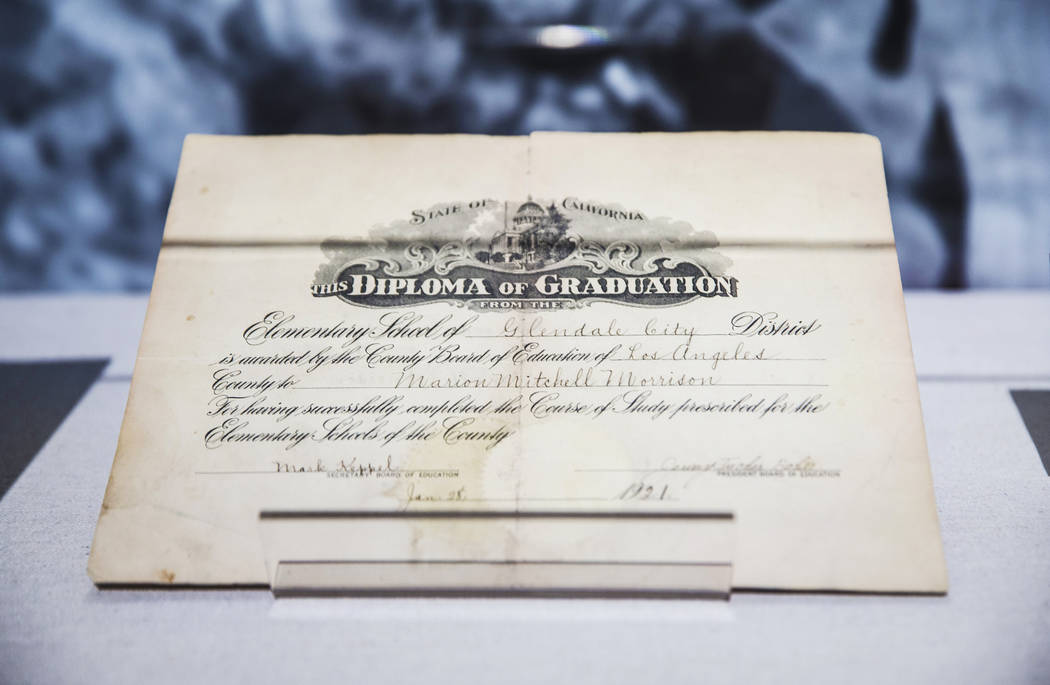 STATE OF CALIFORNIA
THIS DIPLOMA OF GRADUATION
FROM THE
Elementary School of Glendale City District
is awarded by the County Board of Education of Los Angeles
County to Marion Mitchell Morrison
For having successfully completed the Course of Study prescribed for the
Elementary Schools of the County
Mark Keppel
SECRETARY BOARD OF EDUCATION PRESIDENT BOARD OF EDUCATION
Jan. 28, 1921.